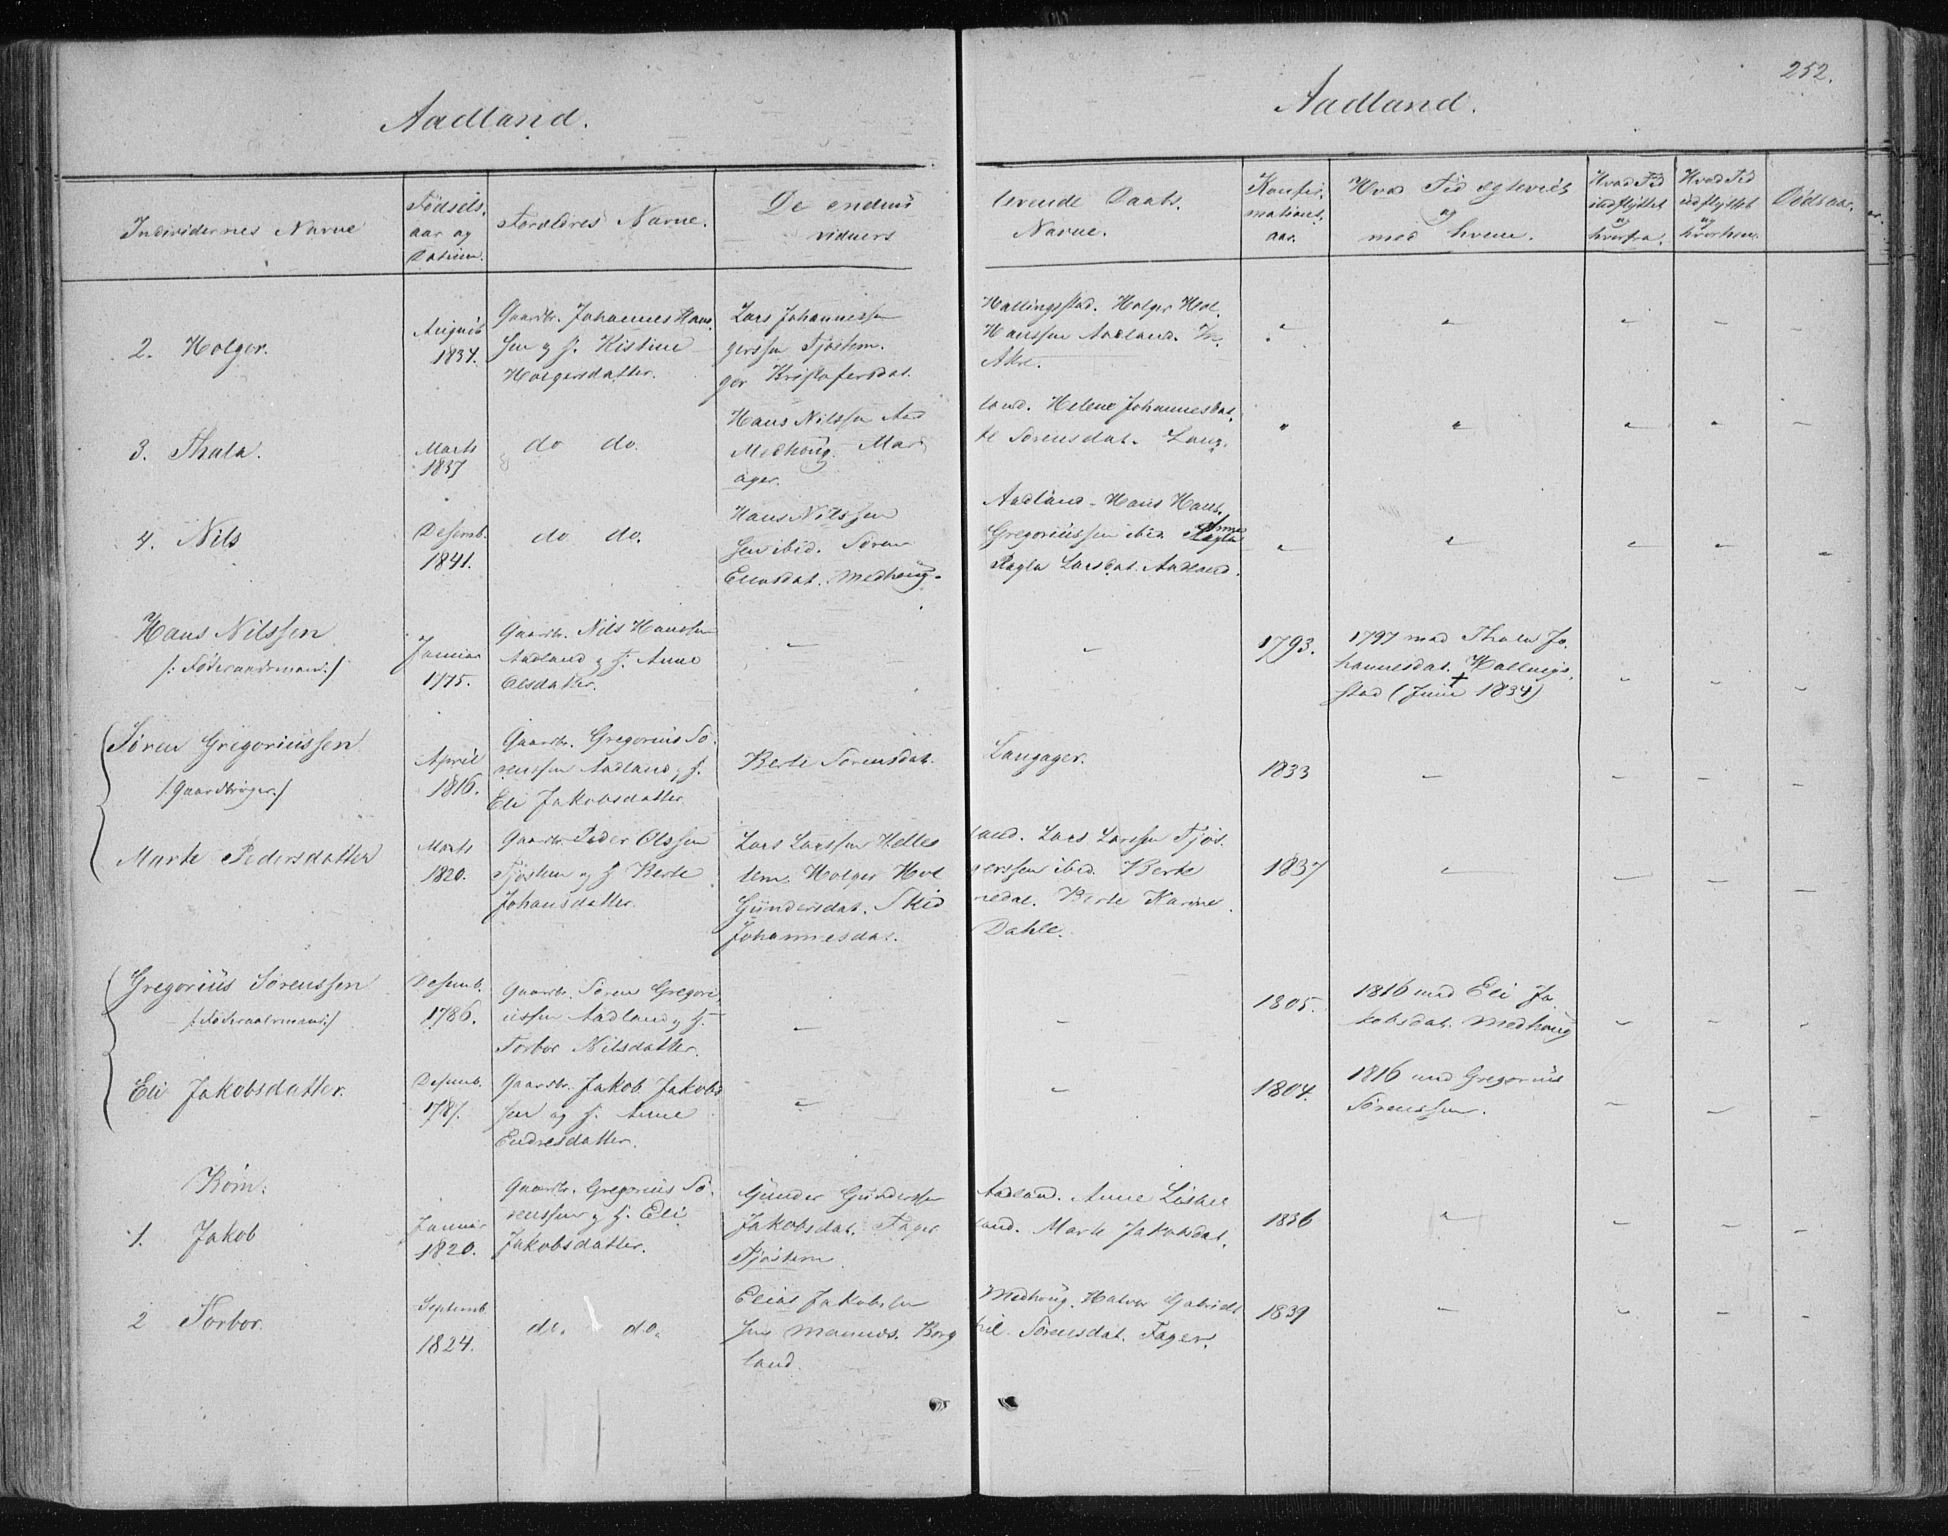 252.
Aadland.
Aadland.
Individernes Navne
Fødsels-
aar og
Datum.
Forældres Navne.
De endnu
viduers
levende Daabs-
Navne.
Konfir-
mations-
aar.
Hvad Tid egteviet
og
med hvem.
Hvad Tid
indflyttet
og
hvorfra.
Hvad Tid
udflyttet
og
hvorhen.
Dødsaar.
2. Holger.
August
1834.
Gaardbr. Johannes Hans-
sen og H. Kistine
Holgersdatter.
Lars Johannessen
gerssen Tjøstem.
ger Kristofersdat.
Hallingstad. Holger Hol-
Hanssen Aadland.
Akre.
3. Thala.
Marts
1837
do do.
Hans Nilssen Aad
Medhoug. Mar
ager.
land. Helene Johannesdat.
te Sørensdat. Lang-
4. Nils
Desemb.
1841.
do do.
Hans Nilssen
sen ibid. Søren
Eliasdat. Medhoug.
Aadland. Hans Hans-
Gregoriussen ibid. Anne
Ragla Larsdat. Aadland.
Hans Nilssen
/: Føderaadsmand :/
Januar
1775.
Gaardbr. Nils Hanssen
Aadland og H. Anne
Olsdatter.
1793.
1797 med Thala Jo-
hannesdat. Hallings-
stad († Juni 1834)
Søren Gregoriussen
/: Gaardbruger :/
April
1816.
Gaardbr. Gregorius Sø-
renssen Aadland og H.
Eli Jakobsdatter.
Berte Sørensdat.
Langager.
1833
Marte Pedersdatter
Marts
1820.
Gaardbr. Peder Olssen
Tjøstem og H. Berte
Johansdatter.
Lars Larssen Helle
tem. Holger Hol
Gundersdat. Skid
Johannesdat.
land. Lars Larssen Tjøs-
gerssen ibid. Berte
redal. Berte Karine
Dahle.
1837
Gregorius Sørenssen
/: Føderaadsmand :/
Desemb.
1786.
Gaardbr. Søren Gregori-
ussen Aadland og H.
Torbor Nilsdatter.
1805.
1816 med Eli Ja-
kobsdat. Medhoug
Eli Jakobsdatter.
Desemb.
1787.
Gaardbr. Jakob Jakobs
sen og H. Anne
Endresdatter.
1804.
1816 med Gregorius
Sørenssen.
Børn:
1. Jakob
Januar
1820.
Gaardbr. Gregorius Sø-
renssen og H. Eli
Jakobsdatter.
Gunder Gunderssen
Jakobsdat. Fager
Tjøstem
Aadland. Anne Lisbet
land. Marte Jakobsdat.
1836
2 Torbor.
Septemb.
1824.
do. do.
Elias Jakobssen
sen Mannes. Borg
land.
Medhoug. Halvor Gabriels
hil. Sørensdat. Fager-
1839